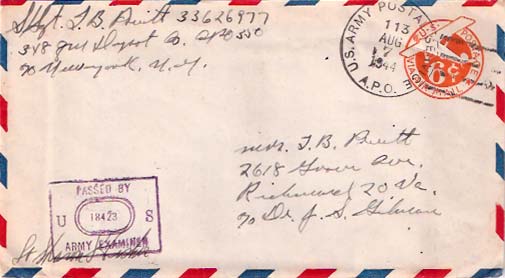 S/Sgt. T. B. Pruitt 33626977
348 Depot Co. APO 350
% New York, N.Y.
U.S. ARMY POSTAL
113
AUG
7
1944
A.P.O.
U.S. POSTAGE
6¢
VIA AIR MAIL
Mrs. T. B. Pruitt
2618 Grove Ave.
Richmond 20 Va.
% Dr. J. S.
PASSED BY
U 18423 S
ARMY EXAMINER